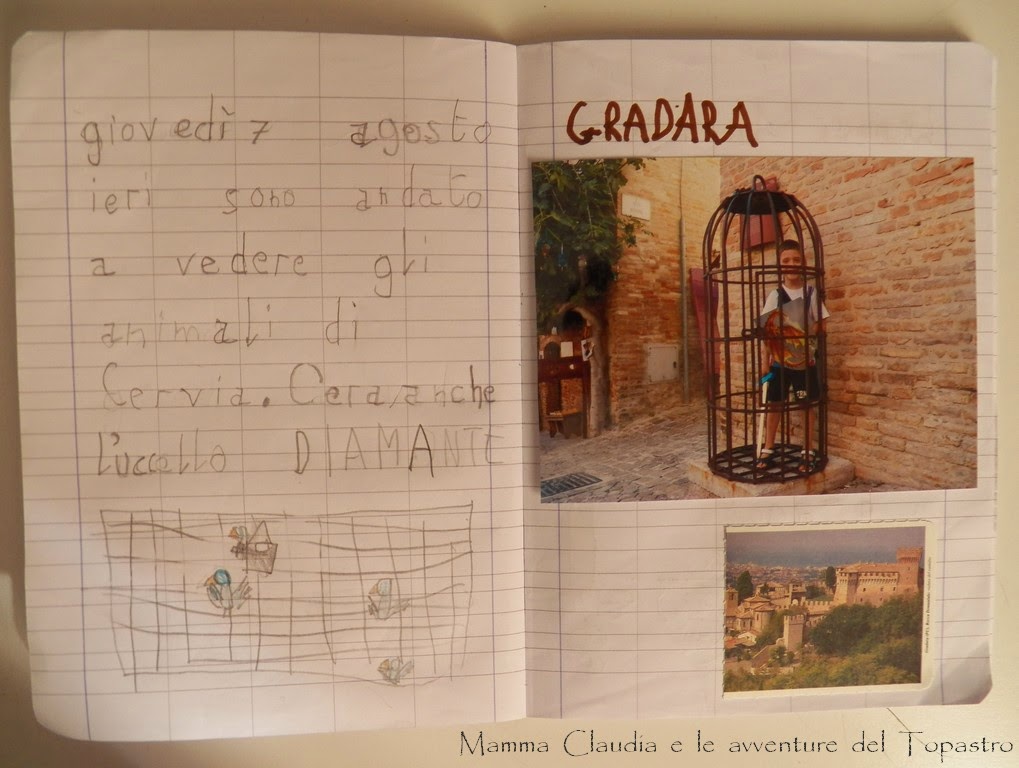 giovedì 7 agosto
ieri sono andato
a vedere gli
animali di
Servia. Cera, anche
l'uccello DIAMANTE
GRADARA
Mamma Claudia e le avventure del Topastro